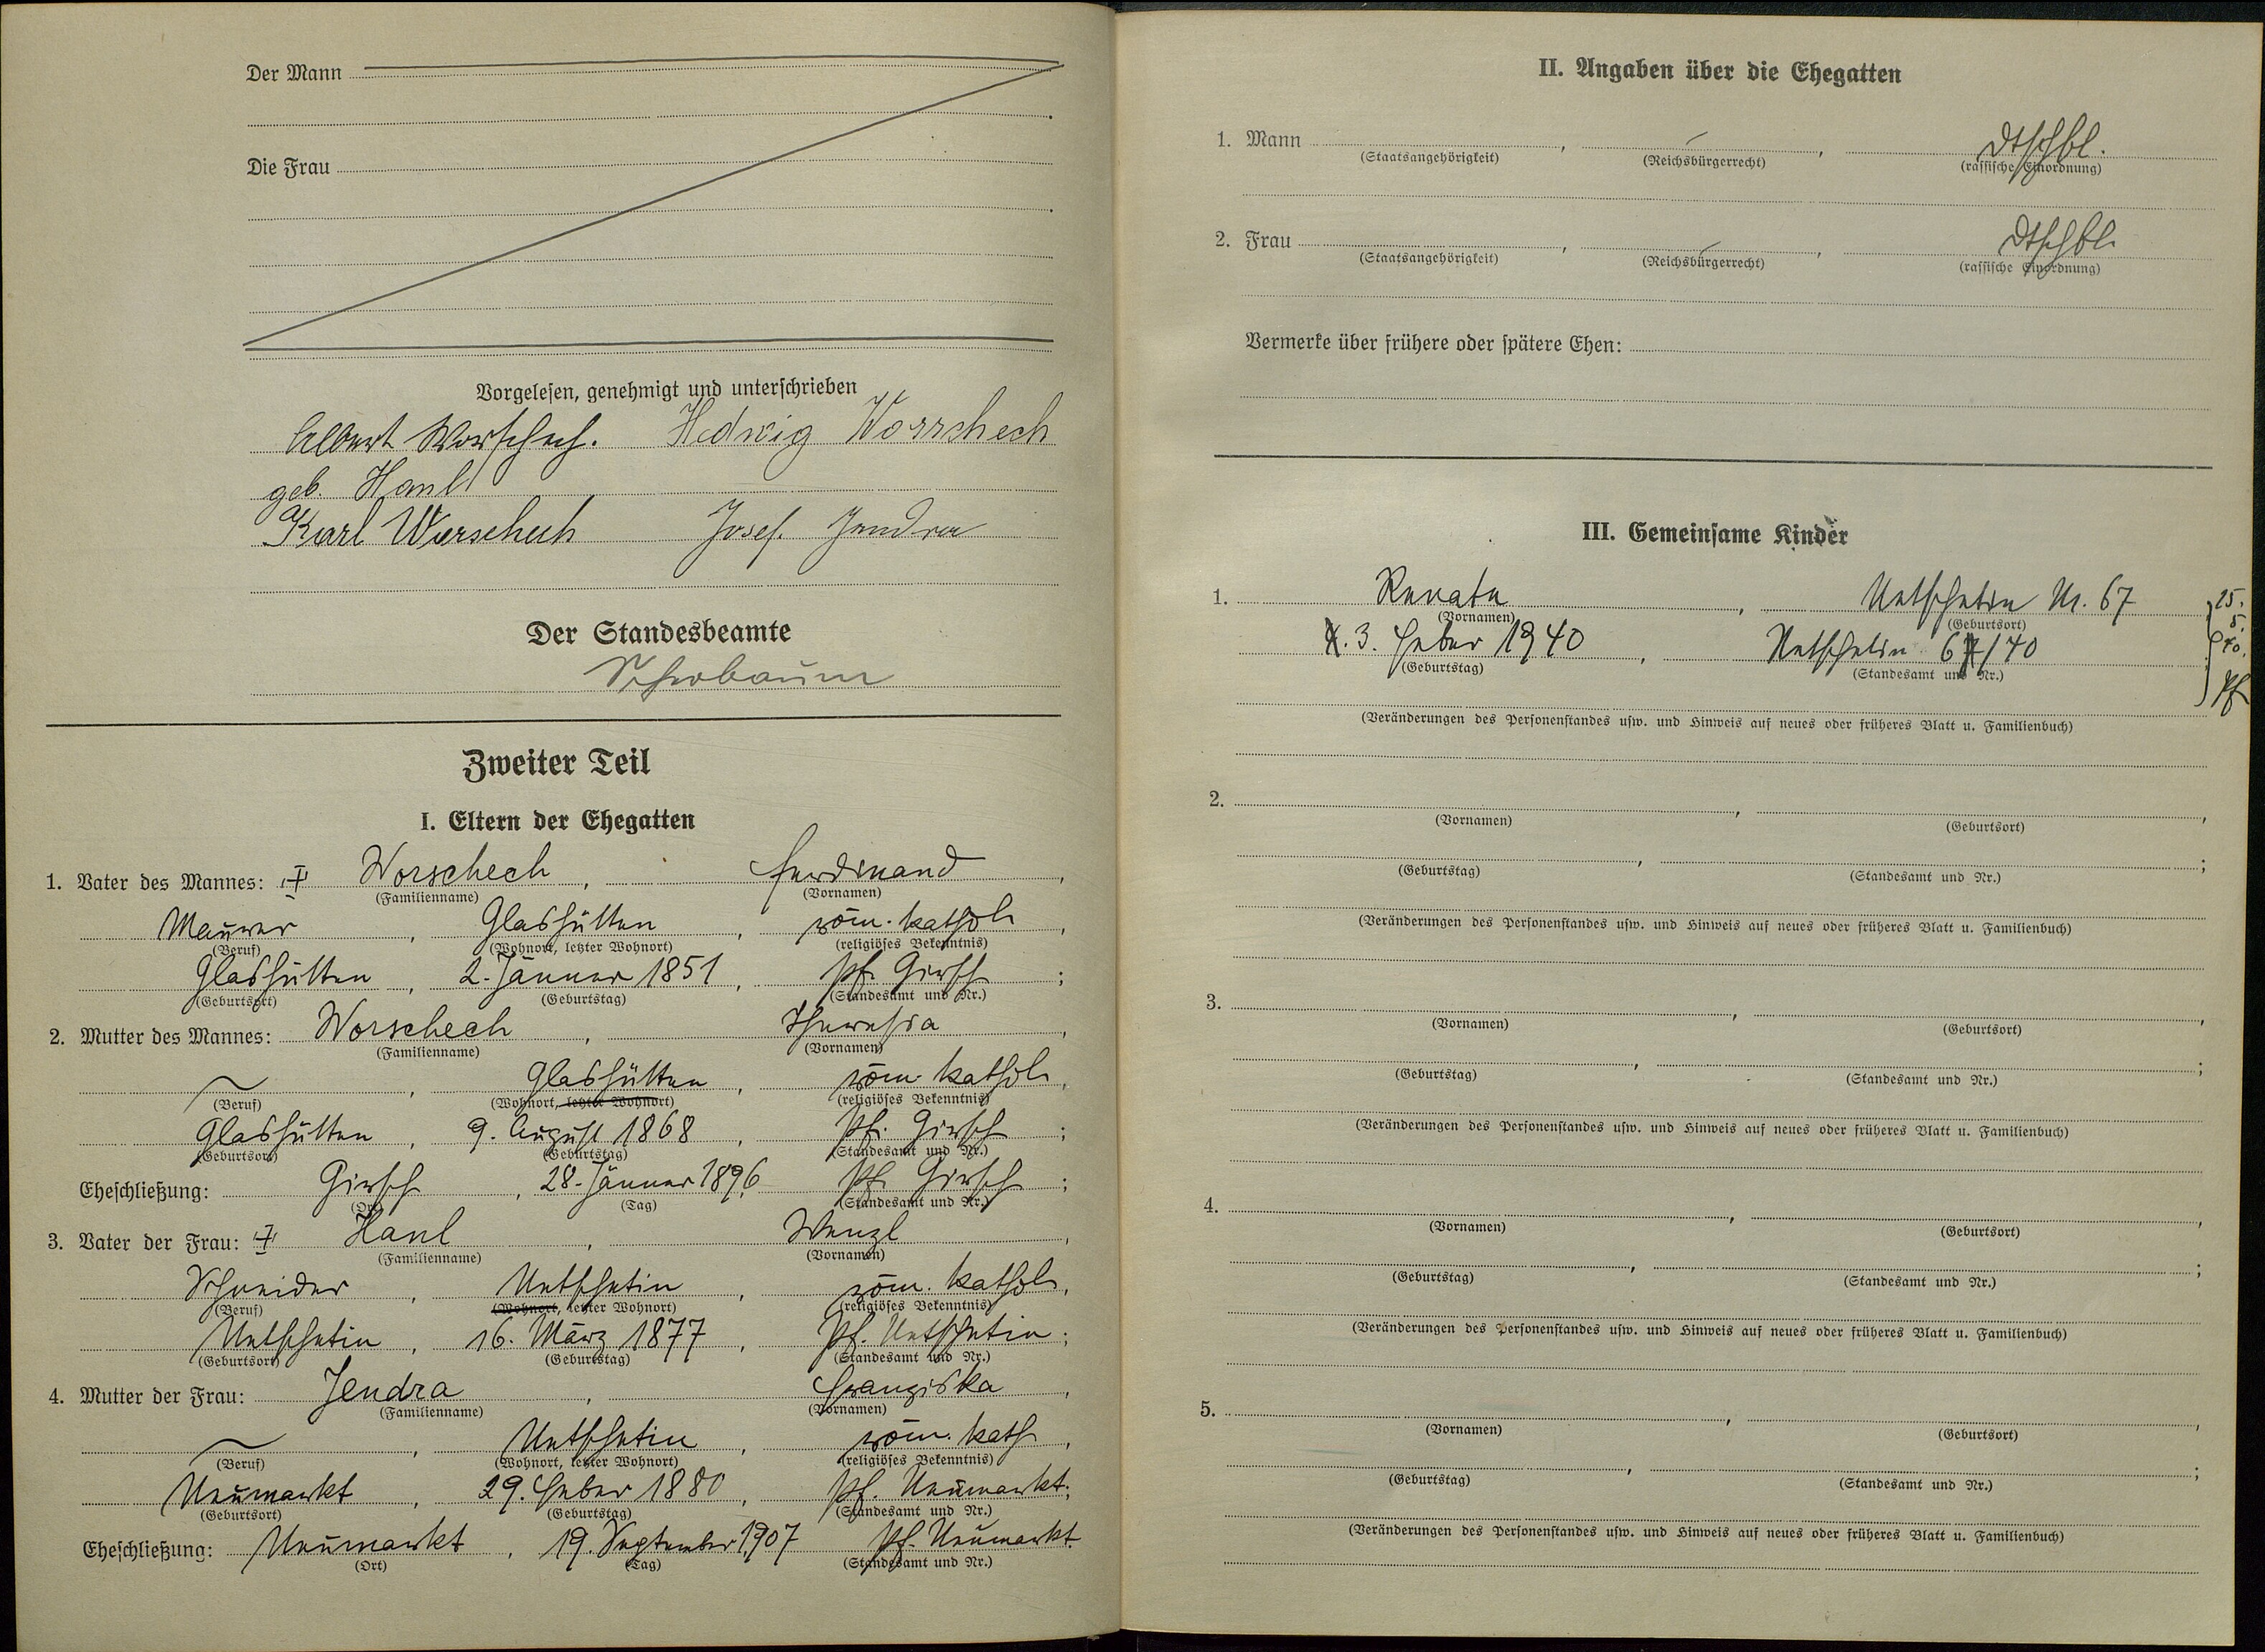 Der Mann
Die Frau
Vorgelesen, genehmigt und unterschrieben
Albert Worschech. Hedwig Worschech
geb. Hanl
Karl Worschech Josef Jendra
Der Standesbeamte
Zweiter Teil
I. Eltern der Ehegatten
1. Vater des Mannes: Worschech, Ferdinand,
(Familienname) (Vornamen)
Maurer, Glashütten, röm. kathol.,
(Beruf) (Wohnort, letzter Wohnort) (religiöses Bekenntnis)
Glashütten, 2. Jänner 1851, Pf. Girsch;
(Geburtsort) (Geburtstag) (Standesamt und Nr.)
2. Mutter des Mannes: Worschech, Theresia,
(Familienname) (Vornamen)
Glashütten, röm. kathol.,
(Beruf) (Wohnort, letzter Wohnort) (religiöses Bekenntnis)
Glashütten, 9. August 1868, Pf. Girsch;
(Geburtsort) (Geburtstag) (Standesamt und Nr.)
Eheschließung: Girsch, 28. Jänner 1896, Pf. Girsch;
(Ort) (Tag) (Standesamt und Nr.)
3. Vater der Frau: Hanl, Wenzl,
(Familienname) (Vornamen)
Schneider, Netschetin, röm. kathol.,
(Beruf) (Wohnort, letzter Wohnort) (religiöses Bekenntnis)
Netschetin, 16. März 1877, Pf. Netschetin;
(Geburtsort) (Geburtstag) (Standesamt und Nr.)
4. Mutter der Frau: Jendra, Franziska,
(Familienname) (Vornamen)
Netschetin, röm. kath.,
(Beruf) (Wohnort, letzter Wohnort) (religiöses Bekenntnis)
Neumarkt, 29. Feber 1880, Pf. Neumarkt;
(Geburtsort) (Geburtstag) (Standesamt und Nr.)
Eheschließung: Neumarkt, 19. September 1907, Pf. Neumarkt.
(Ort) (Tag) (Standesamt und Nr.)
II. Angaben über die Ehegatten
1. Mann, , dtschbl.
(Staatsangehörigkeit) (Reichsbürgerrecht) (rassische Einordnung)
2. Frau, , dtschbl.
(Staatsangehörigkeit) (Reichsbürgerrecht) (rassische Einordnung)
Vermerke über frühere oder spätere Ehen:
III. Gemeinsame Kinder
1. Renate, Netschetin Nr. 67
(Vornamen) (Geburtsort)
3. Feber 1940, Netschetin /40
(Geburtstag) (Standesamt und Nr.)
25.
5.
40.
(Veränderungen des Personenstandes usw. und Hinweis auf neues oder früheres Blatt u. Familienbuch)
2. , ,
(Vornamen) (Geburtsort)
, ;
(Geburtstag) (Standesamt und Nr.)
(Veränderungen des Personenstandes usw. und Hinweis auf neues oder früheres Blatt u. Familienbuch)
3. , ,
(Vornamen) (Geburtsort)
, ;
(Geburtstag) (Standesamt und Nr.)
(Veränderungen des Personenstandes usw. und Hinweis auf neues oder früheres Blatt u. Familienbuch)
4. , ,
(Vornamen) (Geburtsort)
, ;
(Geburtstag) (Standesamt und Nr.)
(Veränderungen des Personenstandes usw. und Hinweis auf neues oder früheres Blatt u. Familienbuch)
5. , ,
(Vornamen) (Geburtsort)
, ;
(Geburtstag) (Standesamt und Nr.)
(Veränderungen des Personenstandes usw. und Hinweis auf neues oder früheres Blatt u. Familienbuch)